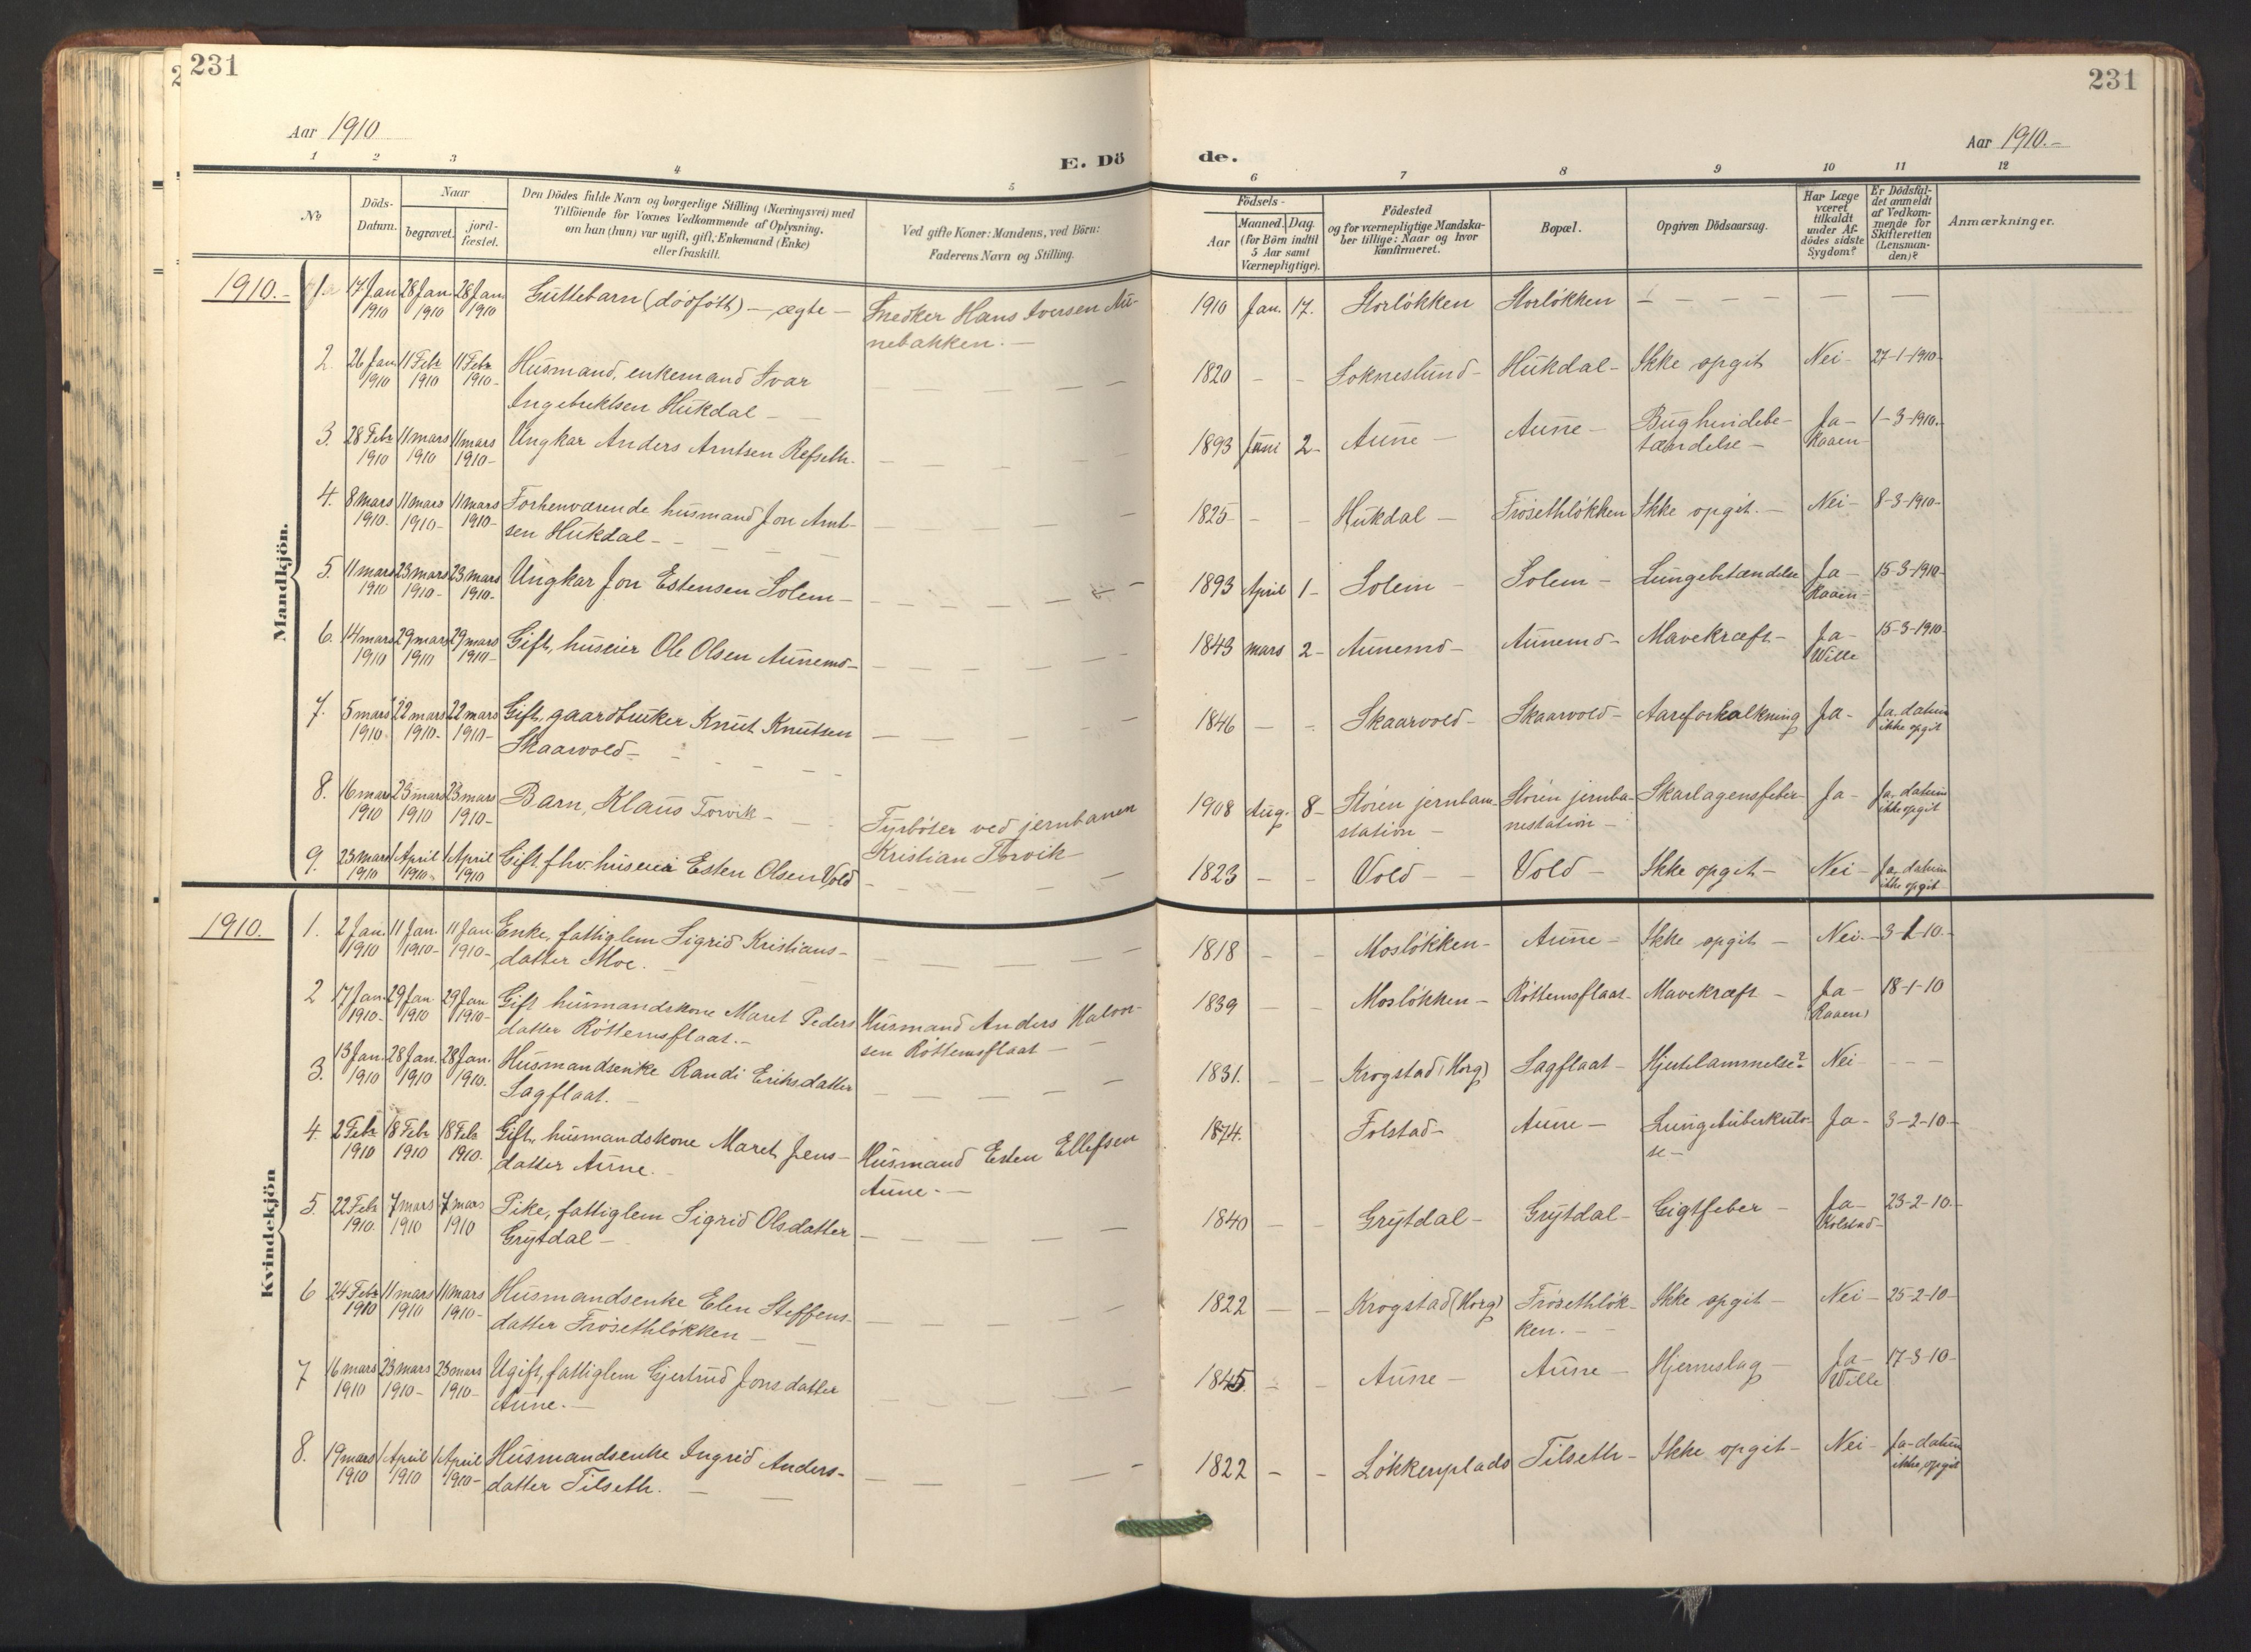 231
231
Aar 1910
Aar 1910.-
E. Dö
de.
1 2 3 4 5
6 7 8 9 10 11 12
No
Döds-
Datum.
Naar
begravet.
jord-
fæstet.
Den Dödes fulde Navn og borgerlige Stilling (Næringsvei) med
Tilföiende for Voxnes Vedkommende af Oplysning,
om han (hun) var ugift, gift, Enkemand (Enke)
eller fraskilt.
Ved gifte Koner: Mandens, ved Börn:
Faderens Navn og Stilling.
Födsels-
Aar
Maaned. Dag.
(for Börn indtil
5 Aar samt
Værnepligtige).
Födested
og for værnepligtige Mandska-
ber tillige: Naar og hvor
konfirmeret.
Bopæl.
Opgiven Dödsaarsag.
Har Læge
været
tilkaldt
under Af-
dödes sidste
Sygdom?
Er Dödsfal-
det anmeldt
af Vedkom-
mende for
Skifteretten
(Lensman-
den)?
Anmærkninger.
Mandkjön.
1910.- 1. 17 Jan 1910 28 Jan. 1910 28 Jan. 1910 Guttebarn (dödfött) - ægte - Snedker Hans Iversen Au-
nebakken. - 1910 Jan. 17. Storløkken Storløkken - - - -
2. 26 Jan 1910 11 Febr 1910 11 Febr 1910- Husmand, enkemand Ivar
Ingebriktsen Hukdal - 1820 - - Sokneslund - Hukdal - Ikke opgit Nei- 27-1-1910-
3. 28 Febr 1910 11 mars 1910 11 mars 1910- Ungkar Anders Arntsen Refseth. 1893 Juni 2- Aune - Aune - Bughindebe-
tændelse - Ja-
Kaaen- 1-3-1910.
4. 8 mars 1910. 11 mars 1910- 11 mars 1910- Forhenværende husmand Jon Arnt-
sen Hukdal - 1825 - - Hukdal - Frøsethløkken Ikke opgit. - Nei- 8-3-1910-
5. 11 mars 1910 23 mars 1910- 23 mars 1910- Ungkar Jon Estensen Solem - 1893 April 1- Solem - Solem - Lungebetændelse Ja-
Kaaen- 15-3-1910-
6. 14 mars 1910 29 mars 1910 29 mars 1910- Gift, huseier Ole Olsen Aunemo - 1843 mars 2- Aunemo - Aunemo - Mavekræft - Ja-
Wille 15-3-1910-
7. 5 mars 1910. 22 mars 1910- 22 mars 1910- Gift, gaardbruker Knut Knutsen
Skaarvold - 1846 - - Skaarvold - Skaarvold - Aareforkalkning Ja- Ja. datum
ikke opgit
8. 16 mars 1910 23 mars 1910 23 mars 1910- Barn, Klaus Torvik - Fyrböter ved jernbanen
Kristian Torvik - 1908 Aug. 8- Støren jernban-
station - Støren jernba-
nestation - Skarlagensfeber - Ja- Ja, datum
ikke opgit
9. 23 mars 1910 1 April 1910. 1 April 1910 Gift fhv. huseier Esten Olsen Vold 1823 - - Vold - Vold - Ikke opgit - Nei- Ja- datum
ikke opgit
Kvindekjön
1910. 1. 2 Jan. 1910 11 Jan. 1910- 11 Jan. 1910- Enke, fattiglem Sigrid Kristians-
datter Moe. - 1818 - - Mosløkken - Aune - Ikke opgit - Nei. 3-1-10.-
2 17 Jan. 1910- 29 Jan. 1910 29 Jan 1910- Gift husmandskone Maret Peders
datter Røttemsflaat.- Husmand Anders Halvor-
sen Røttemsflaat - 1839 - - Mosløkken - Røttemsflaat- Mavekræft - Ja-
Kaaen) 18-1-10
3. 13 Jan. 1910 28 Jan. 1910 28 Jan. 1910. Husmandsenke Randi Eriksdatter
Sagflaat. - 1831. - - Krogstad (Horg) Sagflaat - Hjertelammelse? Nei- - - -
4. 2 Febr 1910 18 Febr 1910 18 Febr 1910. Gift, husmandskone Maret Jens-
datter Aune. Husmand Esten Ellefsen
Aune. - 1874. Folstad - Aune - Lungetuberkulo-
se - Ja- 3-2-10-
5. 22 Febr 1910. 7 mars 1910 7 mars 1910 Pike, fattiglem Sigrid Olsdatter
Grytdal - 1840 - - Grytdal - Grytdal - Gigtfeber - Ja-
Kolstad- 23-2-10.-
6 24 Febr 1910 11 mars 1910 11 mars 1910- Husmandsenke Elen Steffens-
datter Frøsethløkken - 1822 - - Krogstad (Horg) Frøsethløk-
ken. - Ikke opgit - Nei- 25-2-10-
7 16 mars 1910 23 mars 1910- 23 mars 1910- Ugift, fattiglem Gjertrud Jonsdatter
Aune. - 1845. - - Aune - Aune - Hjerneslag - Ja-
Wille 17-3-10-
8. 19 mars 1910 1 April 1910 1 April 1910- Husmandsenke Ingrid Anders-
datter Tilseth. - 1822 - - Løkkenplads Tilseth - Ikke opgit - Nei- Ja-datum
ikke opgit